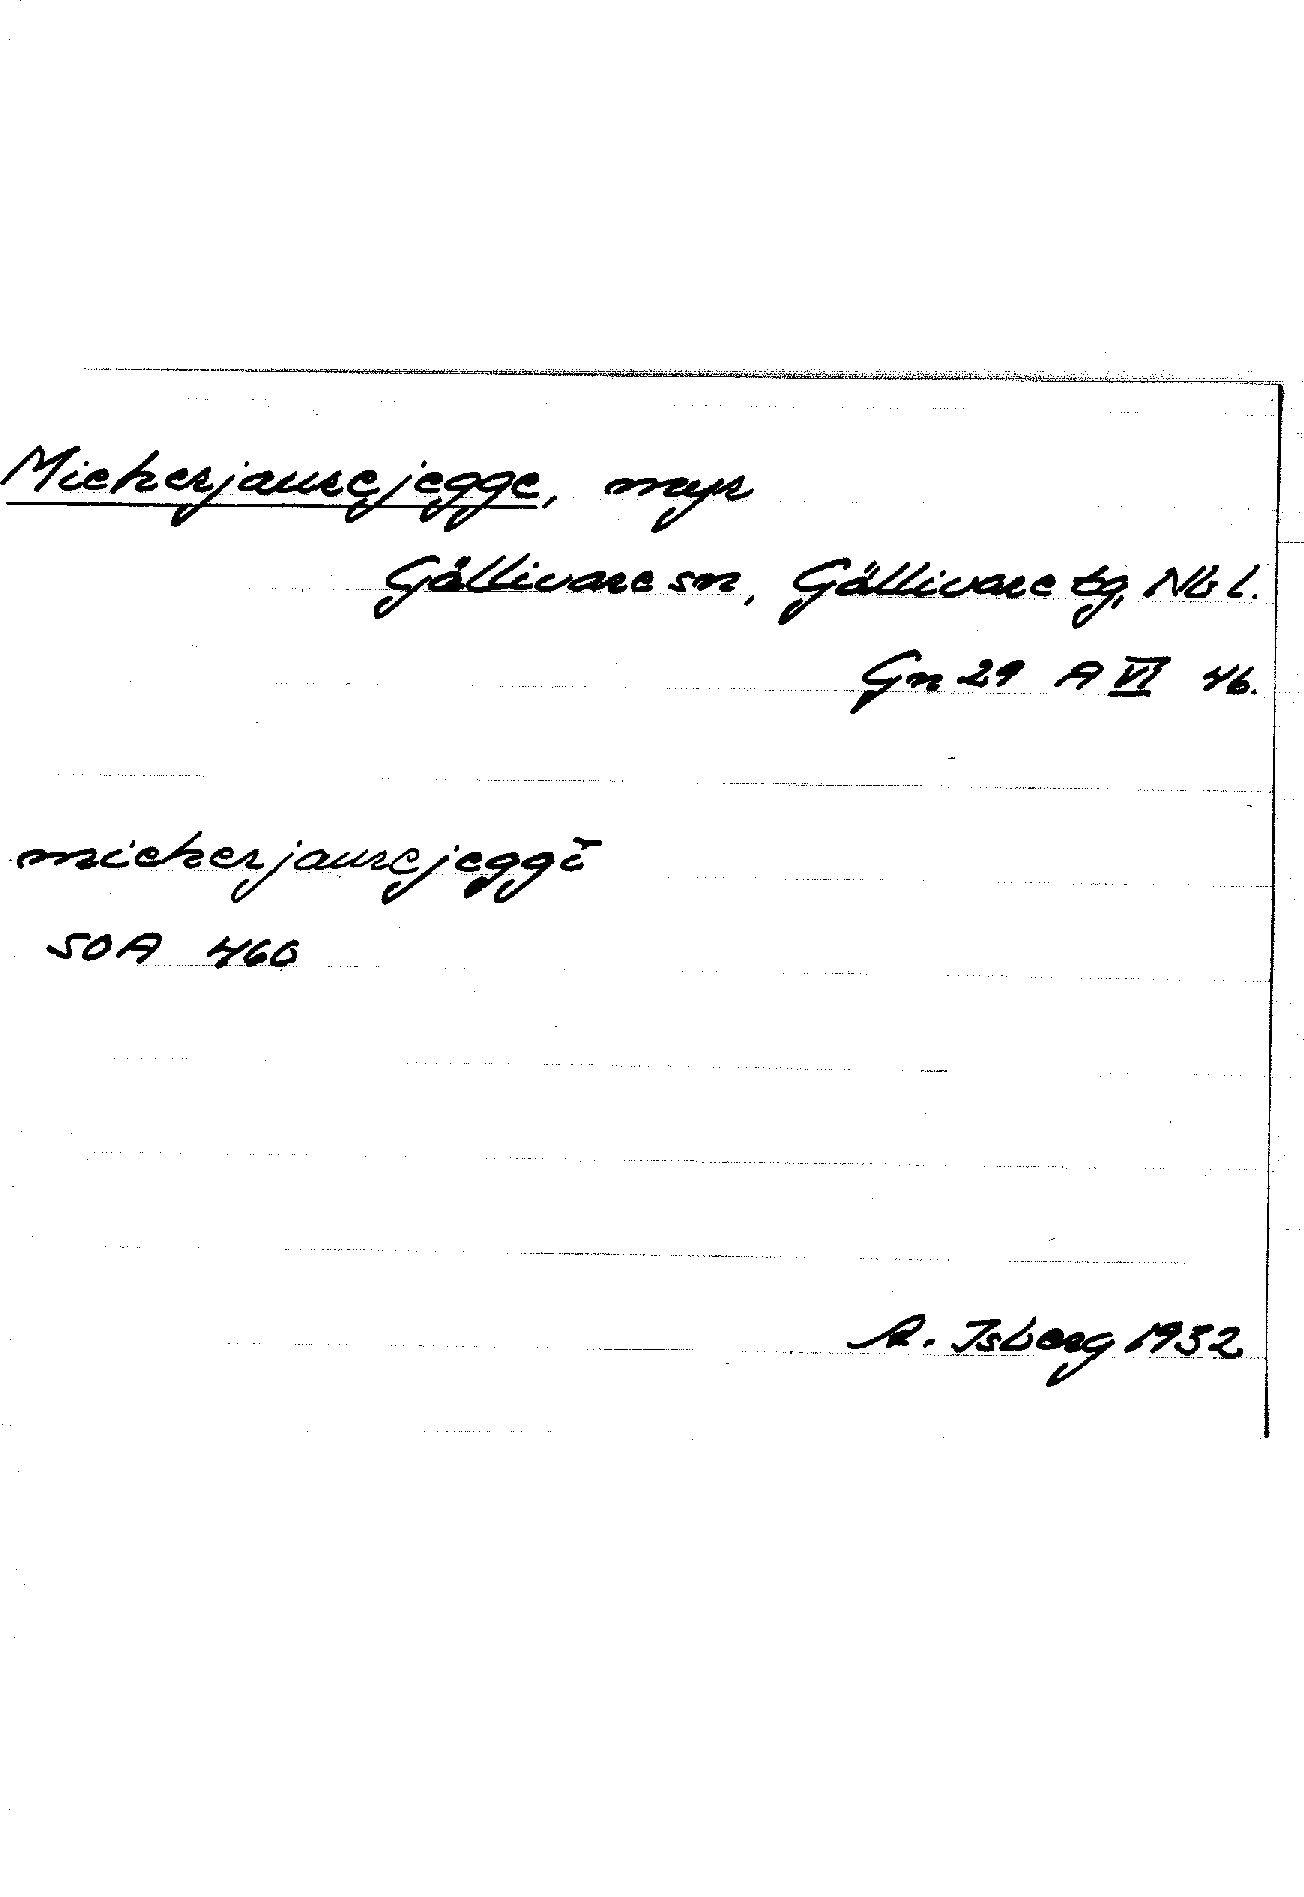 Mickerjaurejegge, myr
Gällivare sn, Gällivare tg, Nb l.
Gn 29 A VI 46.
mickerjaurejeggĭ
SOA 460
A. Isberg 1932